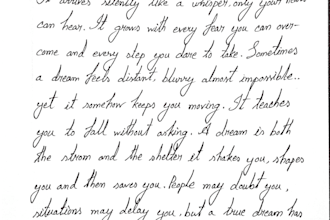 It arrives silently like a whisper, only your heart
can hear. It grows with every fear you can over-
come and every step you dare to take. Sometimes
a dream feels distant, blurry almost impossible..
yet it somehow keeps you moving. It teaches
you to fall without asking. A dream is both
the strom and the shelter it shakes you, shapes
you and then saves you. People may doubt you,
situations may delay you, but a true dream has